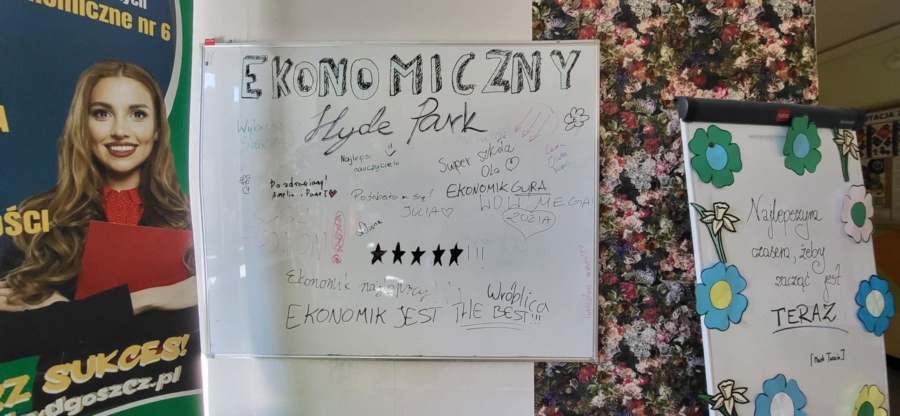 nomiczne nr 6
A
ŚCI
RZ SUKCES!
dgoszcz.pl
EKONOMICZNY
Hyde Park
Najlepsi
nauczyciele
Super szkoła
Ola
Pozdrawiamy!
Amelia i
Podobało mi się!
JULIA
EKONOMIK GURA
WOW! MEGA
ZUZIA
★★★★★!!!
Ekonomik najlepszy
Wróblica
EKONOMIK JEST THE BEST!!!
Najlepszym
czasem, żeby
zacząć jest
TERAZ
[Mark Twain]